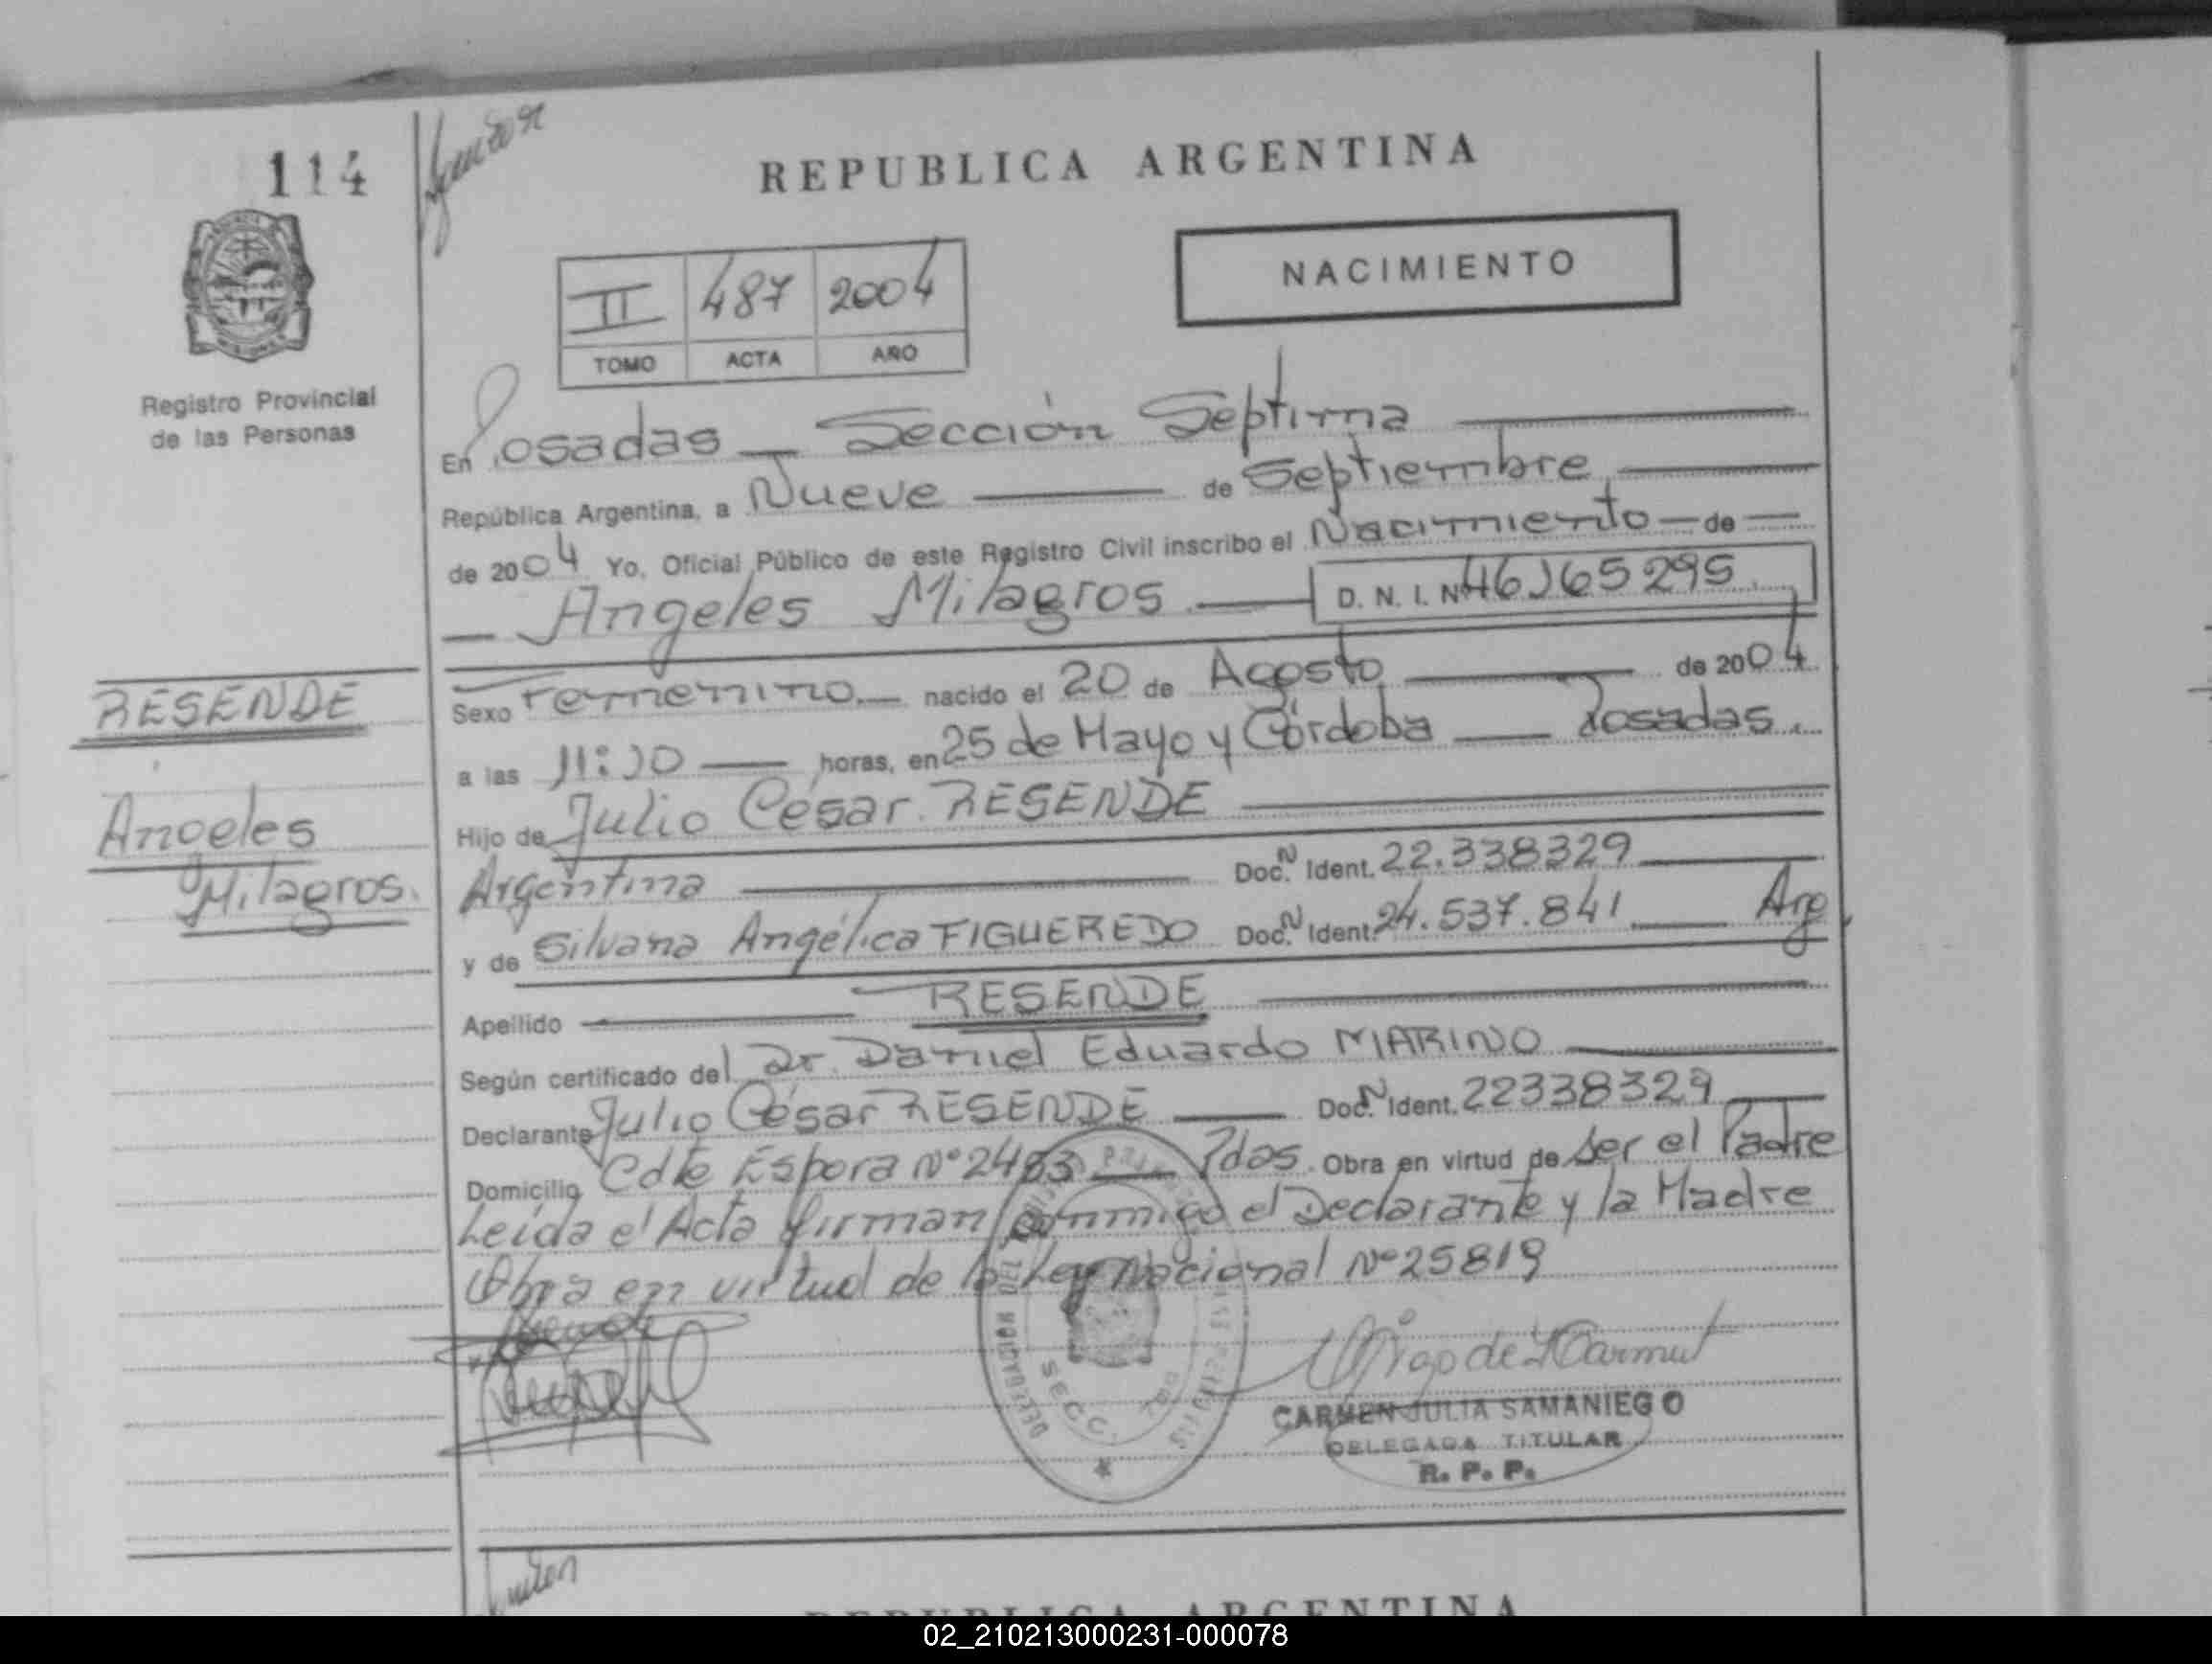 114
REPUBLICA ARGENTINA
NACIMIENTO
II 487 2004
TOMO ACTA AÑO
Registro Provincial
de las Personas
En Posadas — Sección Septima
República Argentina, a Nueve de Septiembre
de 2004 Yo, Oficial Público de este Registro Civil inscribo el Nacimiento — de —
— Angeles Milagros. — D. N. I. Nº 46.165295.
RESENDE
Angeles
Milagros.
Sexo Femenino. — nacido el 20 de Agosto — de 2004
a las 11:10 — horas, en 25 de Mayo y Córdoba — Posadas.
Hijo de Julio César. RESENDE
Argentina — Doc. N Ident. 22.338329
y de Silvana Angélica FIGUEREDO Doc. N Ident. 24.537.841 — Arg
Apellido — RESENDE
Según certificado del Dr. Daniel Eduardo MARINO
Declarante Julio César RESENDE — Doc. N Ident. 22338329
Domicilio Cdte Espora Nº 2483 — Pdas. Obra en virtud de ser el Padre
Leída el Acta firman conmigo el Declarante y la Madre
Obra en virtud de la Ley Nacional Nº 25819
SECC.
CARMEN JULIA SAMANIEGO
DELEGADA TITULAR
R. P. P.
REPUBLICA ARGENTINA
02_210213000231-000078